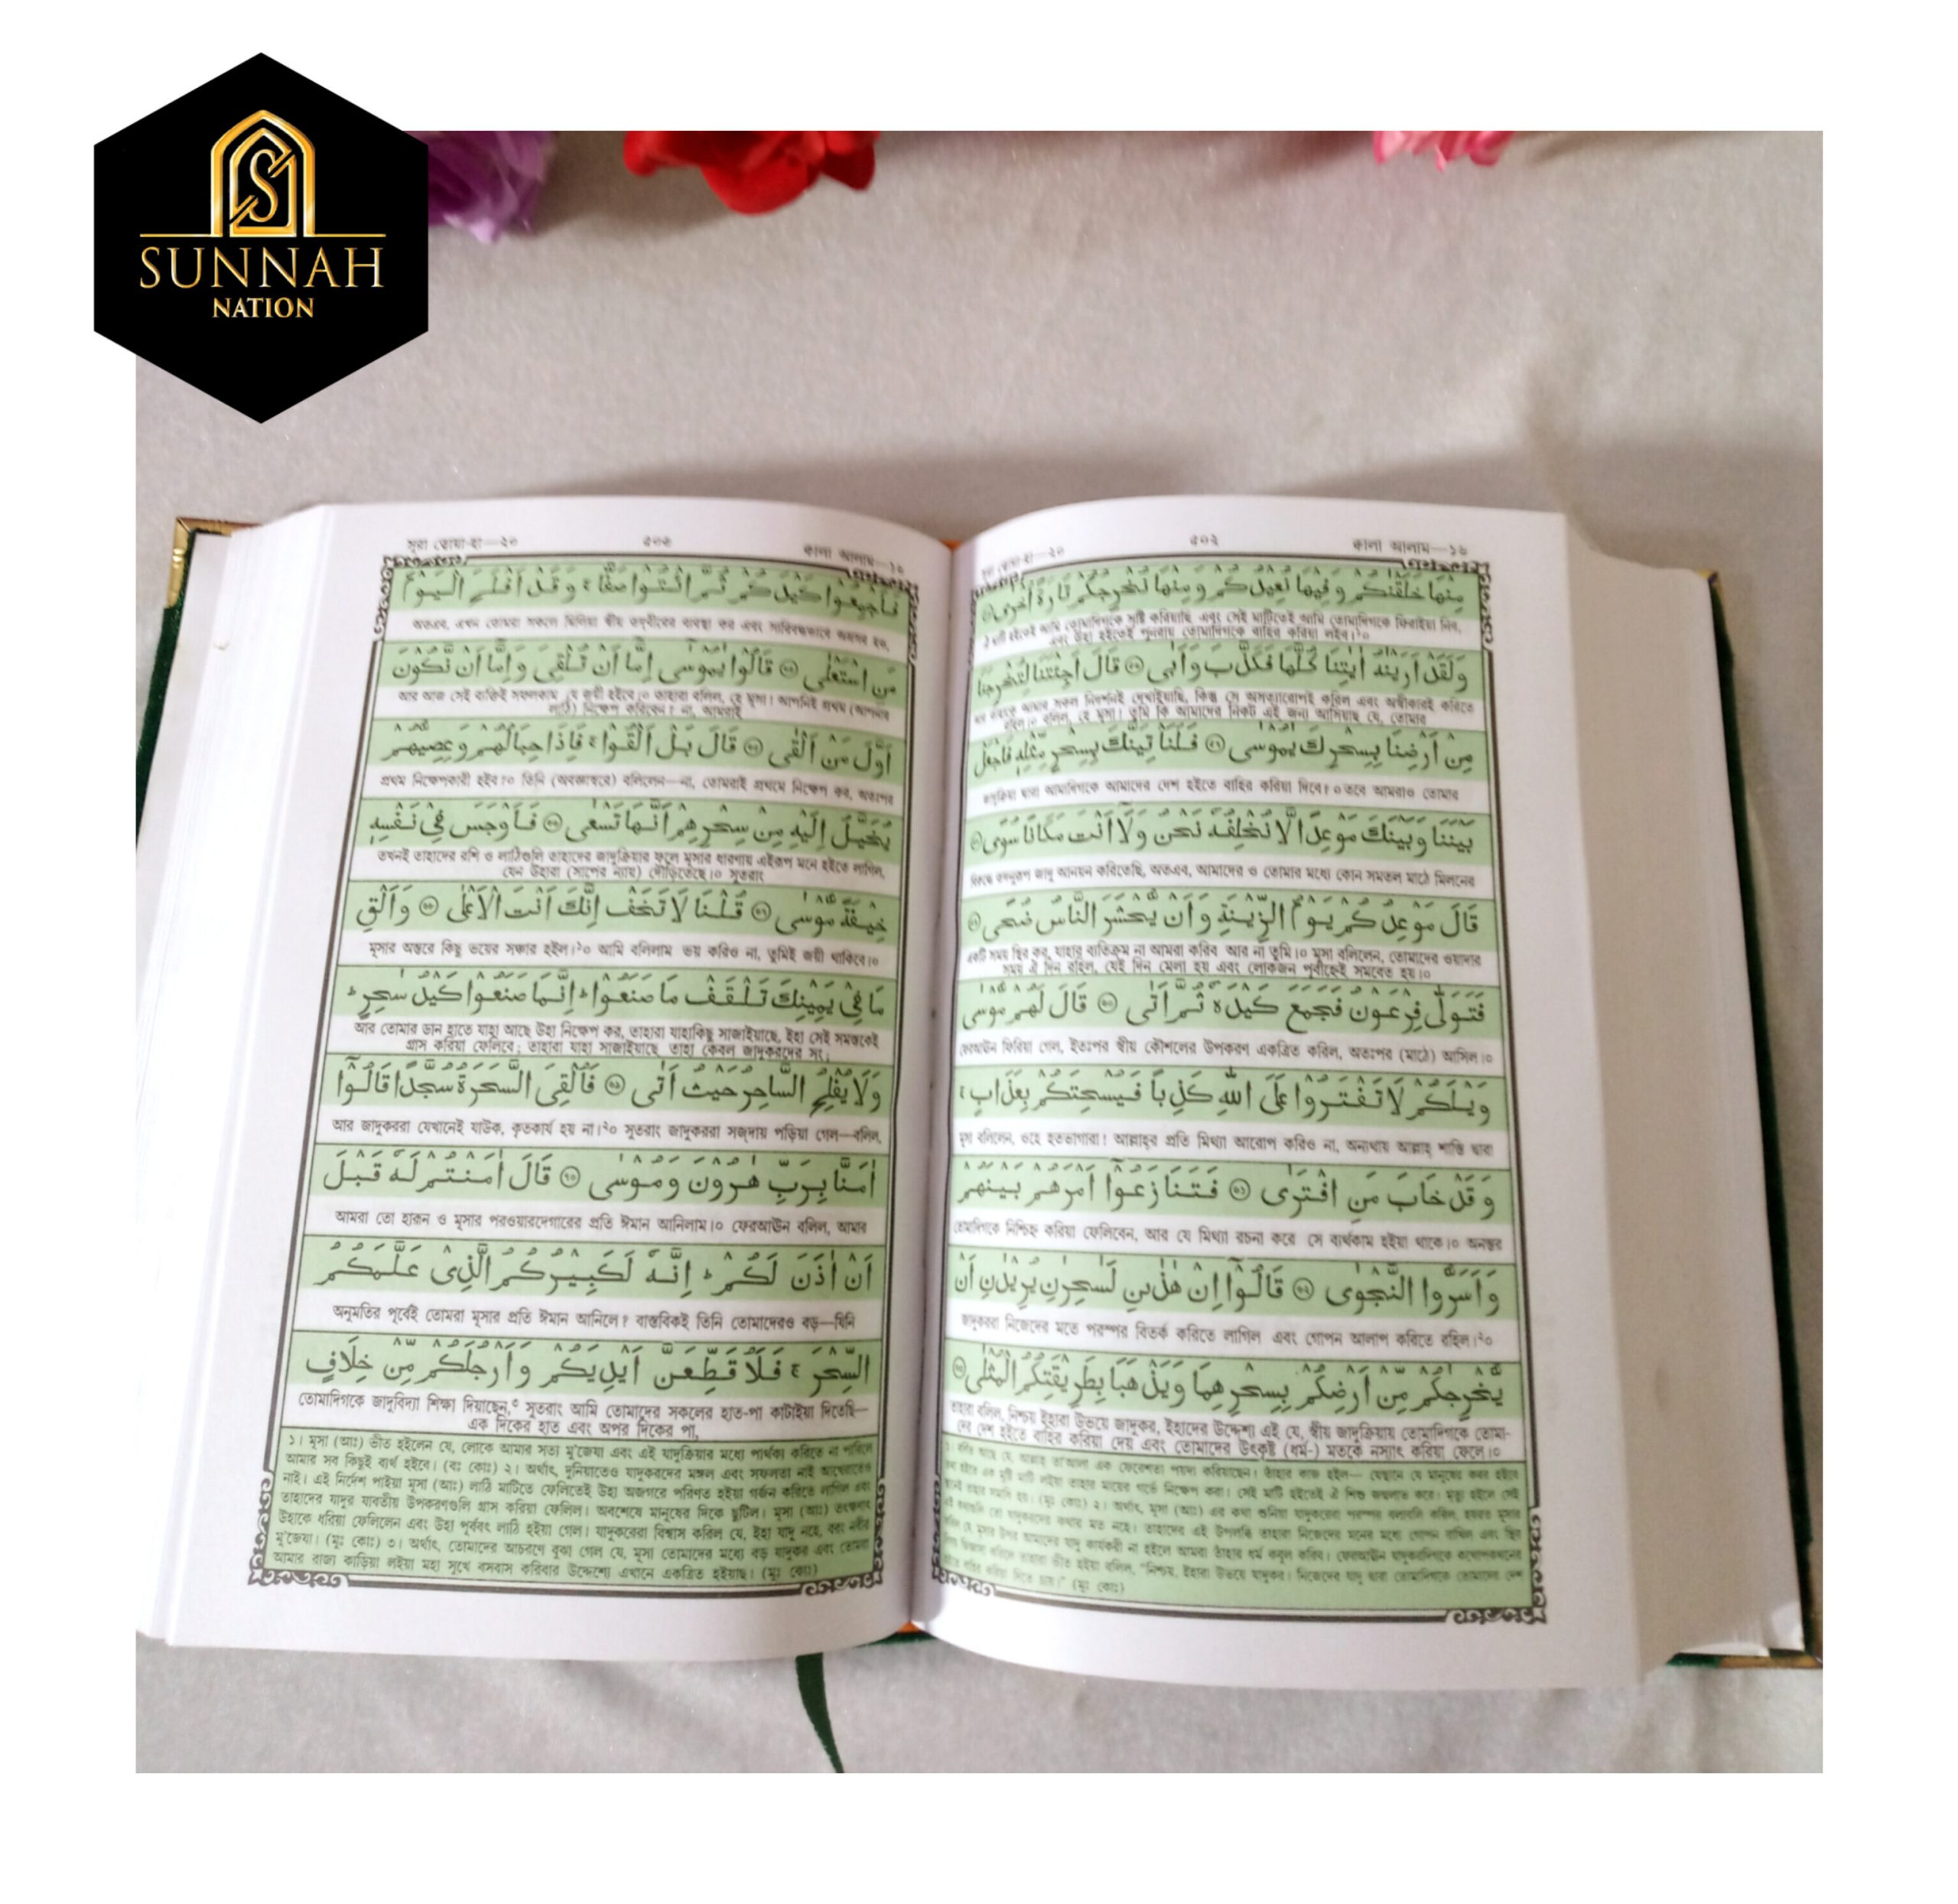 SUNNAH
NATION
সূরা ত্বোয়া-হা—২০ ৫০২ ক্বালা আলাম—১৬
مِنْهَا خَلَقْنٰكُمْ وَفِيْهَا نُعِيْدُكُمْ وَمِنْهَا نُخْرِجُكُمْ تَارَةً اُخْرٰى
ঐ মাটি হইতেই আমি তোমাদিগকে সৃষ্টি করিয়াছি এবং সেই মাটিতেই আমি তোমাদিগকে ফিরাইয়া নিব,
এবং উহা হইতেই পুনরায় তোমাদিগকে বাহির করিয়া লইব।১০
وَلَقَدْ اَرَيْنٰهُ اٰيٰتِنَا كُلَّهَا فَكَذَّبَ وَاَبٰى ۝٥٦ قَالَ اَجِئْتَنَا لِتُخْرِجَنَا
আমার সকল নিদর্শনই দেখাইয়াছি, কিন্তু সে অসত্যারোপই করিল এবং অস্বীকারই করিতে
রহিল।০ বলিল, হে মূসা! তুমি কি আমাদের নিকট এই জন্য আসিয়াছ যে, তোমার
مِنْ اَرْضِنَا بِسِحْرِكَ يٰمُوْسٰى ۝٥٧ فَلَنَاْتِيَنَّكَ بِسِحْرٍ مِّثْلِهٖ فَاجْعَلْ
জাদুক্রিয়া দ্বারা আমাদিগকে আমাদের দেশ হইতে বাহির করিয়া দিবে?০ তবে আমরাও তোমার
بَيْنَنَا وَبَيْنَكَ مَوْعِدًا لَّا نُخْلِفُهٗ نَحْنُ وَلَآ اَنْتَ مَكَانًا سُوًى ۝٥٨
জাদু আনয়ন করিতেছি, অতএব, আমাদের ও তোমার মধ্যে কোন সমতল মাঠে মিলনের
قَالَ مَوْعِدُكُمْ يَوْمُ الزِّيْنَةِ وَاَنْ يُّحْشَرَ النَّاسُ ضُحًى ۝٥٩
একটি সময় স্থির কর, যাহার ব্যতিক্রম না আমরা করিব আর না তুমি।০ মূসা বলিলেন, তোমাদের ওয়াদার
সময় ঐ দিন রহিল, যেই দিন মেলা হয় এবং লোকজন পূর্বাহ্নেই সমবেত হয়।০
فَتَوَلّٰى فِرْعَوْنُ فَجَمَعَ كَيْدَهٗ ثُمَّ اَتٰى ۝٦٠ قَالَ لَهُمْ مُّوْسٰى
ফেরআউন ফিরিয়া গেল, ইতঃপর স্বীয় কৌশলের উপকরণ একত্রিত করিল, অতঃপর (মাঠে) আসিল।০
وَيْلَكُمْ لَا تَفْتَرُوْا عَلَى اللّٰهِ كَذِبًا فَيُسْحِتَكُمْ بِعَذَابٍ ۚ
মূসা বলিলেন, ওহে হতভাগারা! আল্লাহ্‌র প্রতি মিথ্যা আরোপ করিও না, অন্যথায় আল্লাহ্ শাস্তি দ্বারা
وَقَدْ خَابَ مَنِ افْتَرٰى ۝٦١ فَتَنَازَعُوْٓا اَمْرَهُمْ بَيْنَهُمْ
তোমাদিগকে নিশ্চিহ্ন করিয়া ফেলিবেন, আর যে মিথ্যা রচনা করে সে ব্যর্থকাম হইয়া থাকে।০ অনন্তর
وَاَسَرُّوا النَّجْوٰى ۝٦٢ قَالُوْٓا اِنْ هٰذٰىنِ لَسٰحِرٰنِ يُرِيْدٰنِ اَنْ
জাদুকররা নিজেদের মতে পরস্পর বিতর্ক করিতে লাগিল এবং গোপন আলাপ করিতে রহিল।২০
يُّخْرِجٰكُمْ مِّنْ اَرْضِكُمْ بِسِحْرِهِمَا وَيَذْهَبَا بِطَرِيْقَتِكُمُ الْمُثْلٰى ۝٦٣
তাহারা বলিল, নিশ্চয় ইহারা উভয়ে জাদুকর, ইহাদের উদ্দেশ্য এই যে, স্বীয় জাদুক্রিয়ায় তোমাদিগকে তোমা-
দের দেশ হইতে বাহির করিয়া দেয় এবং তোমাদের উৎকৃষ্ট (ধর্ম-) মতকে নস্যাৎ করিয়া ফেলে।০
সূরা ত্বোয়া-হা—২০ ৫০৩ ক্বালা আলাম—১৬
فَاَجْمِعُوْا كَيْدَكُمْ ثُمَّ ائْتُوْا صَفًّا ۚ وَقَدْ اَفْلَحَ الْيَوْمَ
অতএব, এখন তোমরা সকলে মিলিয়া স্বীয় তদ্‌বীরের ব্যবস্থা কর এবং সারিবদ্ধভাবে অগ্রসর হও,
مَنِ اسْتَعْلٰى ۝٦٤ قَالُوْا يٰمُوْسٰٓى اِمَّآ اَنْ تُلْقِيَ وَاِمَّآ اَنْ نَّكُوْنَ
আর আজ সেই ব্যক্তিই সফলকাম যে জয়ী হইবে।০ তাহারা বলিল, হে মূসা! আপনিই প্রথম (আপনার
লাঠি) নিক্ষেপ করিবেন? না, আমরাই
اَوَّلَ مَنْ اَلْقٰى ۝٦٥ قَالَ بَلْ اَلْقُوْا ۚ فَاِذَا حِبَالُهُمْ وَعِصِيُّهُمْ
প্রথম নিক্ষেপকারী হইব?০ তিনি (অবজ্ঞাস্বরে) বলিলেন—না, তোমরাই প্রথমে নিক্ষেপ কর, অতঃপর
يُخَيَّلُ اِلَيْهِ مِنْ سِحْرِهِمْ اَنَّهَا تَسْعٰى ۝٦٦ فَاَوْجَسَ فِيْ نَفْسِهٖ
তখনই তাহাদের রশি ও লাঠিগুলি তাহাদের জাদুক্রিয়ার ফলে মূসার ধারণায় এইরূপ মনে হইতে লাগিল,
যেন উহারা (সাপের ন্যায়) দৌড়িতেছে।০ সুতরাং
خِيْفَةً مُّوْسٰى ۝٦٧ قُلْنَا لَا تَخَفْ اِنَّكَ اَنْتَ الْاَعْلٰى ۝٦٨ وَاَلْقِ
মূসার অন্তরে কিছু ভয়ের সঞ্চার হইল।১০ আমি বলিলাম ভয় করিও না, তুমিই জয়ী থাকিবে।০
مَا فِيْ يَمِيْنِكَ تَلْقَفْ مَا صَنَعُوْا ؕ اِنَّمَا صَنَعُوْا كَيْدُ سٰحِرٍ ؕ
আর তোমার ডান হাতে যাহা আছে উহা নিক্ষেপ কর, তাহারা যাহাকিছু সাজাইয়াছে, ইহা সেই সমস্তকেই
গ্রাস করিয়া ফেলিবে; তাহারা যাহা সাজাইয়াছে, তাহা কেবল জাদুকরদের সং;
وَلَا يُفْلِحُ السَّاحِرُ حَيْثُ اَتٰى ۝٦٩ فَاُلْقِيَ السَّحَرَةُ سُجَّدًا قَالُوْٓا
আর জাদুকররা যেখানেই যাউক, কৃতকার্য হয় না।২০ সুতরাং জাদুকররা সজ্‌দায় পড়িয়া গেল—বলিল,
اٰمَنَّا بِرَبِّ هٰرُوْنَ وَمُوْسٰى ۝٧٠ قَالَ اٰمَنْتُمْ لَهٗ قَبْلَ
আমরা তো হারূন ও মূসার পরওয়ারদেগারের প্রতি ঈমান আনিলাম।০ ফেরআউন বলিল, আমার
اَنْ اٰذَنَ لَكُمْ ؕ اِنَّهٗ لَكَبِيْرُكُمُ الَّذِيْ عَلَّمَكُمُ
অনুমতির পূর্বেই তোমরা মূসার প্রতি ঈমান আনিলে? বাস্তবিকই তিনি তোমাদেরও বড়—যিনি
السِّحْرَ ۚ فَلَاُقَطِّعَنَّ اَيْدِيَكُمْ وَاَرْجُلَكُمْ مِّنْ خِلَافٍ
তোমাদিগকে জাদুবিদ্যা শিক্ষা দিয়াছেন,৩ সুতরাং আমি তোমাদের সকলের হাত-পা কাটাইয়া দিতেছি—
এক দিকের হাত এবং অপর দিকের পা,
১। মূসা (আঃ) ভীত হইলেন যে, লোকে আমার সত্য মু'জেযা এবং এই যাদুক্রিয়ার মধ্যে পার্থক্য করিতে না পারিলে
আমার সব কিছুই ব্যর্থ হইবে। (বঃ কোঃ) ২। অর্থাৎ, দুনিয়াতেও যাদুকরদের মঙ্গল এবং সফলতা নাই আখেরাতেও
নাই। এই নির্দেশ পাইয়া মূসা (আঃ) লাঠি মাটিতে ফেলিতেই উহা অজগরে পরিণত হইয়া গর্জন করিতে লাগিল এবং
তাহাদের যাদুর যাবতীয় উপকরণগুলি গ্রাস করিয়া ফেলিল। অবশেষে মানুষের দিকে ছুটিল। মূসা (আঃ) তৎক্ষণাৎ
উহাকে ধরিয়া ফেলিলেন এবং উহা পূর্ববৎ লাঠি হইয়া গেল। যাদুকরেরা বিশ্বাস করিল যে, ইহা যাদু নহে, বরং নবীর
মু'জেযা। (মুঃ কোঃ) ৩। অর্থাৎ, তোমাদের আচরণে বুঝা গেল যে, মূসা তোমাদের মধ্যে বড় যাদুকর এবং তোমরা
আমার রাজ্য কাড়িয়া লইয়া মহা সুখে বসবাস করিবার উদ্দেশ্যে এখানে একত্রিত হইয়াছ। (মুঃ কোঃ)